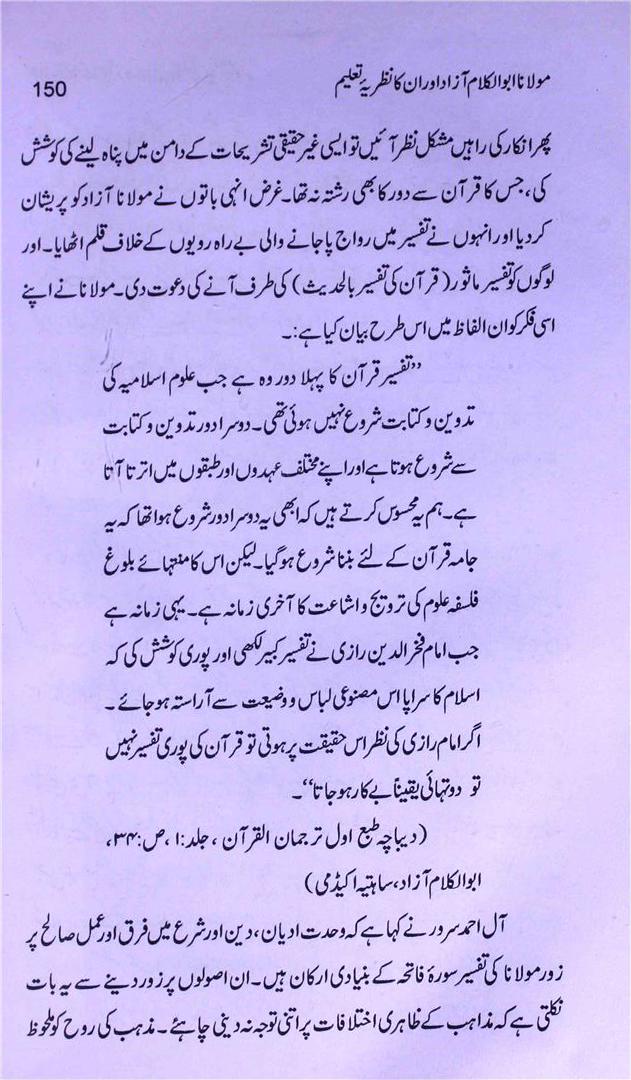 مولانا ابوالکلام آزاد اور ان کا نظریۂ تعلیم 150
پھر انکار کی راہیں مشکل نظر آئیں تو ایسی غیر حقیقی تشریحات کے دامن میں پناہ لینے کی کوشش
کی، جس کا قرآن سے دور کا بھی رشتہ نہ تھا۔ غرض انہی باتوں نے مولانا آزاد کو پریشان
کر دیا اور انہوں نے تفسیر میں رواج پا جانے والی بے راہ رویوں کے خلاف قلم اٹھایا۔ اور
لوگوں کو تفسیر ماثور (قرآن کی تفسیر بالحدیث) کی طرف آنے کی دعوت دی۔ مولانا نے اپنے
اسی فکر کو ان الفاظ میں اس طرح بیان کیا ہے:۔
”تفسیر قرآن کا پہلا دور وہ ہے جب علوم اسلامیہ کی
تدوین و کتابت شروع نہیں ہوئی تھی۔ دوسرا دور تدوین و کتابت
سے شروع ہوتا ہے اور اپنے مختلف عہدوں اور طبقوں میں اترتا آتا
ہے۔ ہم یہ محسوس کرتے ہیں کہ ابھی یہ دوسرا دور شروع ہوا تھا کہ یہ
جامہ قرآن کے لئے بننا شروع ہو گیا۔ لیکن اس کا منتہائے بلوغ
فلسفہ علوم کی ترویج و اشاعت کا آخری زمانہ ہے۔ یہی زمانہ ہے
جب امام فخر الدین رازی نے تفسیر کبیر لکھی اور پوری کوشش کی کہ
اسلام کا سراپا اس مصنوعی لباس و وضیعت سے آراستہ ہو جائے۔
اگر امام رازی کی نظر اس حقیقت پر ہوتی تو قرآن کی پوری تفسیر نہیں
تو دو تہائی یقیناً بے کار ہو جاتا“۔
(دیباچہ طبع اول ترجمان القرآن، جلد:۱، ص:۳۴،
ابوالکلام آزاد، ساہتیہ اکیڈمی)
آل احمد سرور نے کہا ہے کہ وحدت ادیان، دین اور شرع میں فرق اور عمل صالح پر
زور مولانا کی تفسیر سورۂ فاتحہ کے بنیادی ارکان ہیں۔ ان اصولوں پر زور دینے سے یہ بات
نکلتی ہے کہ مذاہب کے ظاہری اختلافات پر اتنی توجہ نہ دینی چاہئے۔ مذہب کی روح کو ملحوظ